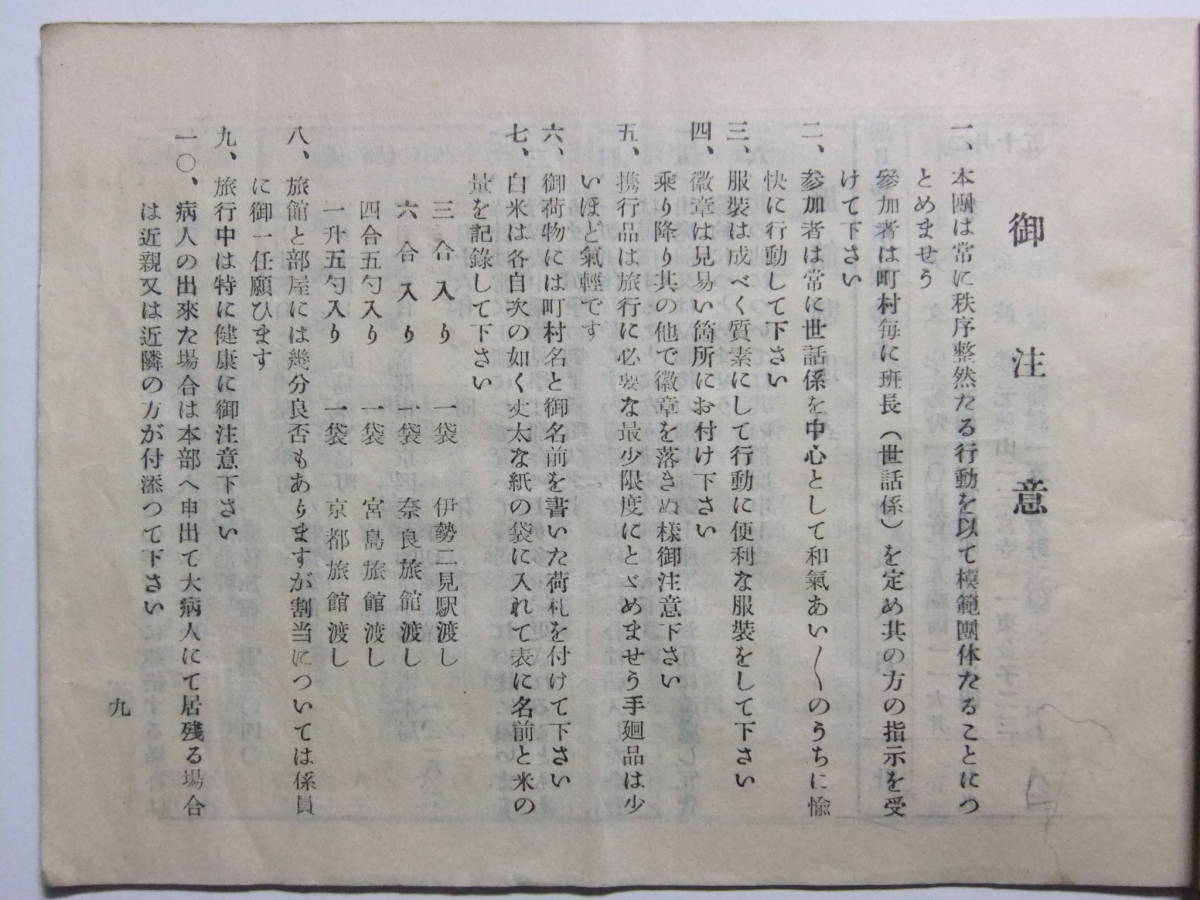 御注意
一、本團は常に秩序整然たる行動を以て模範團体たることにつ
とめませう
參加者は町村每に班長（世話係）を定め其の方の指示を受
けて下さい
二、參加者は常に世話係を中心として和氣あい〱のうちに愉
快に行動して下さい
三、服裝は成べく質素にして行動に便利な服裝をして下さい
四、徽章は見易い箇所にお付け下さい
乘り降り其の他で徽章を落さぬ樣御注意下さい
五、携行品は旅行に必要な最少限度にとゞめませう手廻品は少
いほど氣輕です
六、御荷物には町村名と御名前を書いた荷札を付けて下さい
七、白米は各自次の如く丈太な紙の袋に入れて表に名前と米の
量を記錄して下さい
三合入り　一袋　伊勢二見駅渡し
六合入り　一袋　奈良旅館渡し
四合五勺入り　一袋　宮島旅館渡し
一升五勺入り　一袋　京都旅館渡し
八、旅館と部屋には幾分良否もありますが割当については係員
に御一任願ひます
九、旅行中は特に健康に御注意下さい
一〇、病人の出來た場合は本部へ申出て大病人にて居殘る場合
は近親又は近隣の方が付添つて下さい
九